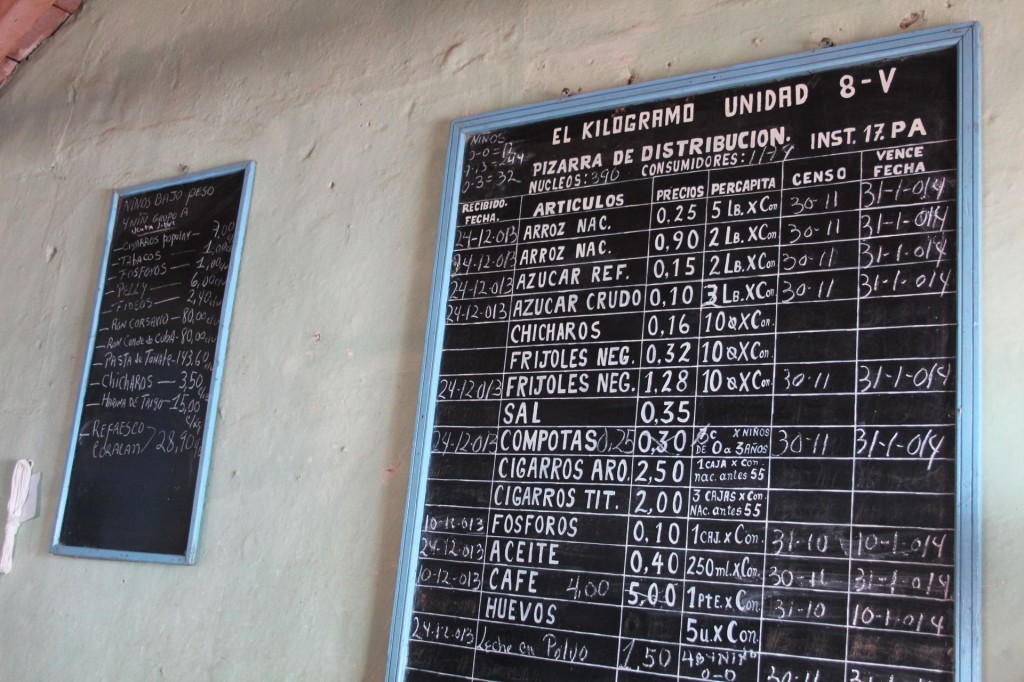 NIÑOS BAJO PESO
4 NIÑ GRUPO A
Venta Libre
— CIGARROS popular — 7,00
— TABACOS — 1,00
— FOSFOROS — 1,00
— PELLY — 6,00
— FIDEOS — 2,40
— RON CORSARIO — 80,00
— RON Conde de CUBA — 80,00
— PASTA de Tomate — 143,60
— CHICHAROS — 3,50
— HARINA DE TRIGO — 15,00
REFRESCO
CORACAN 28,90
NIÑOS
EL KILOGRAMO UNIDAD 8-V
PIZARRA DE DISTRIBUCION. INST. 17. PA
0-3 = 32
NUCLEOS: 390 CONSUMIDORES:
RECIBIDO. FECHA. ARTICULOS PRECIOS PERCAPITA CENSO VENCE FECHA
24-12-013 ARROZ NAC. 0,25 5 LB. X Con 30-11 31-1-014
24-12-013 ARROZ NAC. 0,90 2 LB. X Con 30-11 31-1-014
24-12-013 AZUCAR REF. 0,15 2 LB. X Con 30-11 31-1-014
24-12-013 AZUCAR CRUDO 0,10 3 LB. X Con 30-11 31-1-014
CHICHAROS 0,16 10 X Con.
FRIJOLES NEG. 0,32 10 X Con.
24-12-013 FRIJOLES NEG. 1,28 10 X Con. 30-11 31-1-014
SAL 0,35
24-12-013 COMPOTAS 0,25 0,30 X NIÑOS DE 0 a 3 AÑOS 30-11 31-1-014
CIGARROS ARO. 2,50 1 CAJA X Con. nac. antes 55
CIGARROS TIT. 2,00 3 CAJAS X Con. NAC. antes 55
10-12-013 FOSFOROS 0,10 1 CAJ. X Con. 31-10 10-1-014
24-12-013 ACEITE 0,40 250 ml. X Con. 30-11 31-1-014
10-12-013 CAFE 4,00 5,00 1 PTE. X Con. 31-10 10-1-014
HUEVOS 5 u. X Con.
24-12-013 Leche en Polvo 1,50